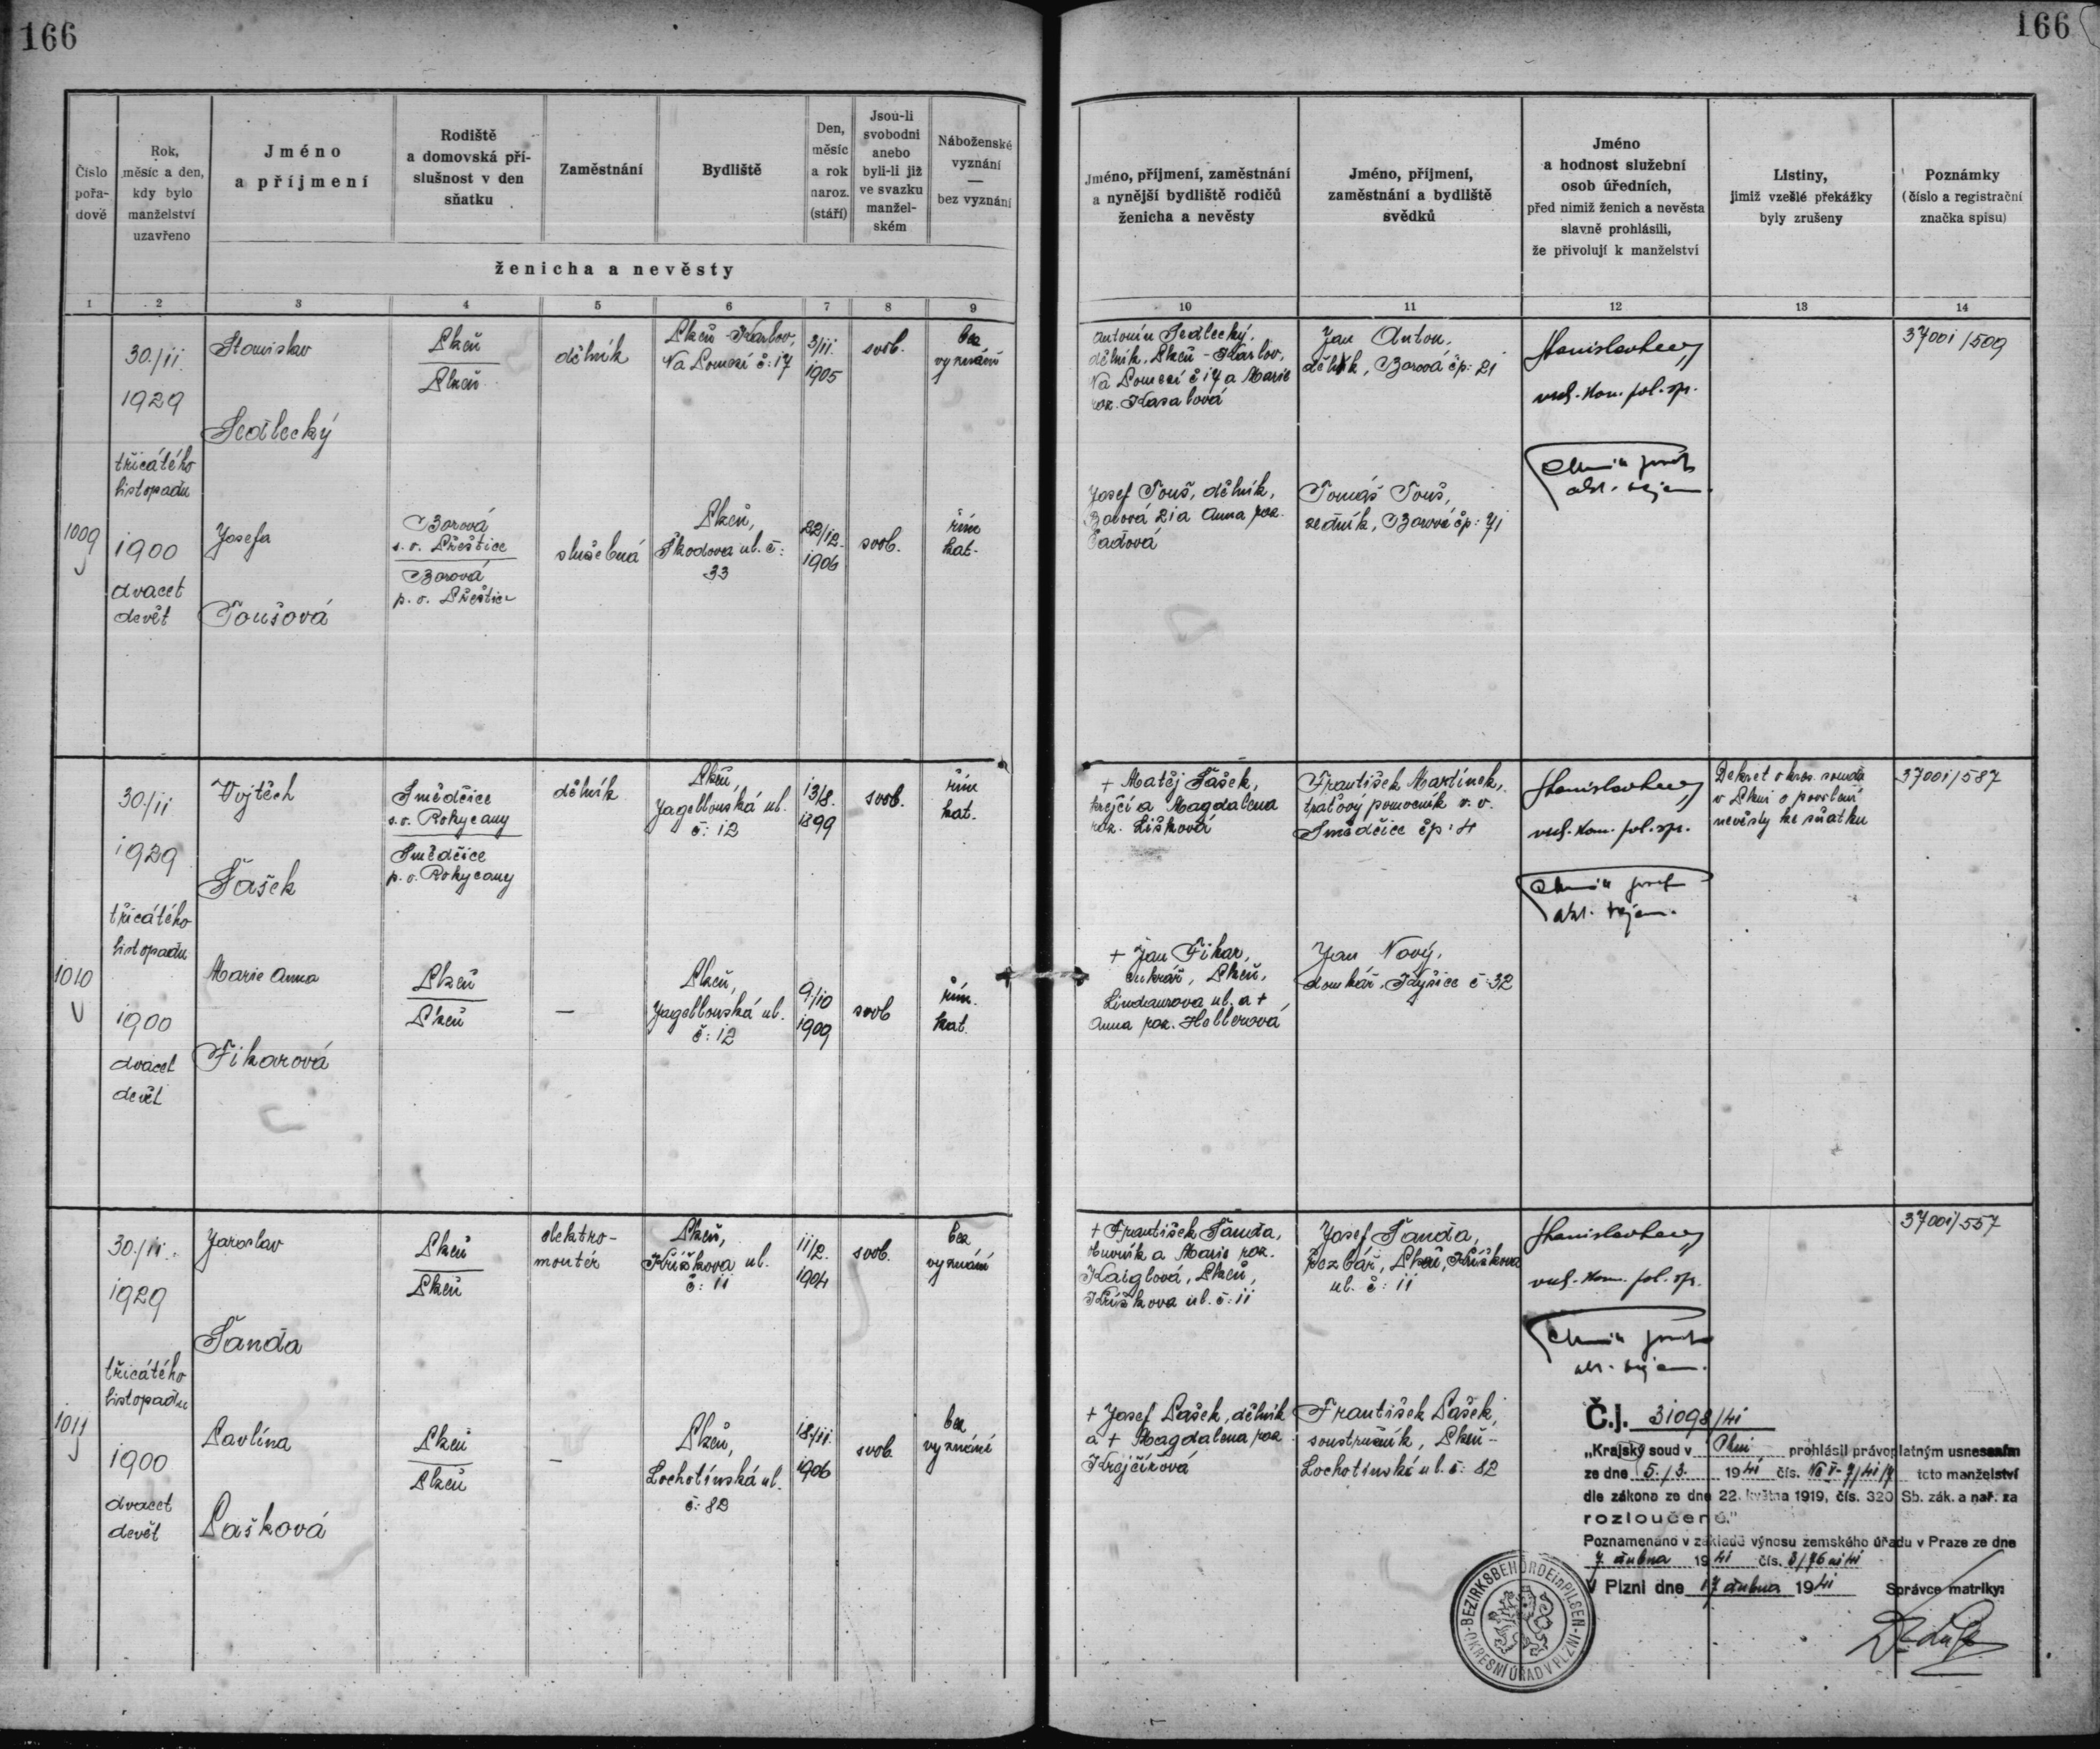 166
166
Číslo pořa-dové
Rok, měsíc a den, kdy bylo manželství uzavřeno
Jméno a příjmení
Rodiště a domovská pří-slušnost v den sňatku
Zaměstnání
Bydliště
Den, měsíc a rok naroz. (stáří)
Jsou-li svobodni anebo byli-li již ve svazku manžel-ském
Náboženské vyznání — bez vyznání
ženicha a nevěsty
Jméno, příjmení, zaměstnání a nynější bydliště rodičů ženicha a nevěsty
Jméno, příjmení, zaměstnání a bydliště svědků
Jméno a hodnost služební osob úředních, před nimiž ženich a nevěsta slavně prohlásili, že přivolují k manželství
Listiny, jimiž vzešlé překážky byly zrušeny
Poznámky (číslo a registrační značka spisu)
1 2 3 4 5 6 7 8 9 10 11 12 13 14
1009
30./11.
1929
třicátého
listopadu
1900
dvacet
devět
Stanislav
Sedlecký
Plzeň
Plzeň
dělník
Plzeň - Karlov,
Na Pomezí č: 17
3/11.
1905
svob.
bez
vyznání
Antonín Sedlecký,
dělník, Plzeň - Karlov,
Na Pomezí č 17 a Marie
roz. Kasalová
Jan Anton,
dělník, Borová čp: 21
vrch. kom. pol. spr.
37001/509
Josefa
Toušová
Borová
s. o. Přeštice
Borová
p. o. Přeštice
služebná
Plzeň,
Škodova ul. č:
33
22/12.
1906
svob.
řím.
kat.
Josef Touš, dělník,
Borová 21 a Anna roz.
Tomáš Touš,
zedník, Borová čp: 71
1010
30./11
1929
třicátého
listopadu
1900
dvacet
devět
Vojtěch
Fašek
Smědčice
s. o. Rokycany
Smědčice
p. o. Rokycany
dělník
Plzeň,
Jagellonská ul.
č: 12
13/8.
1899
svob.
řím
kat.
+ Matěj Fašek,
krejčí a Magdalena
roz. Lišková
František Martínek,
traťový pomocník v. v.
Smědčice čp: 4
vrch. kom. pol. spr.
Dekret okres. soudu
v Plzni o povolení
nevěsty ke sňatku
37001/587
Marie Anna
Fikarová
Plzeň
Plzeň
—
Plzeň,
Jagellonská ul.
č: 12
9/10
1909
svob
řím.
kat.
+ Jan Fikar,
cukrář, Plzeň,
Lindaurova ul. a +
Anna roz. Hellerová
Jan Nový,
domkář, Kyšice č: 32
1011
30./11.
1929
třicátého
listopadu
1900
dvacet
devět
Jaroslav
Šanda
Plzeň
Plzeň
elektro-
montér
Plzeň,
Křížkova ul.
č: 11
11/2.
1904
svob.
bez
vyznání
+ František Šanda,
obuvník a Marie roz.
Kaiglová, Plzeň,
Křížkova ul. č: 11
Josef Šanda,
řezbář, Plzeň, Křížkova
ul. č: 11
vrch. kom. pol. spr.
37001/557
Pavlína
Pašková
Plzeň
Plzeň
—
Plzeň,
Lochotínská ul.
č: 82
18/11.
1906
svob.
bez
vyznání
+ Josef Pašek, dělník
a + Magdalena roz
Krojčíková
František Pašek,
soustružník, Plzeň -
Lochotínská ul. č: 82
Č.j. 31098/41
„Krajský soud v Plzni prohlásil právoplatným usnesením
ze dne 5./3. 1941 čís. toto manželství
dle zákona ze dne 22. května 1919, čís. 320 Sb. zák. a nař. za
rozloučené."
Poznamenáno v základě výnosu zemského úřadu v Praze ze dne
7. dubna 1941 čís.
V Plzni dne 17 dubna 1941 Správce matriky:
BEZIRKSBEHÖRDE in PILSEN
OKRESNÍ ÚŘAD V PLZNI